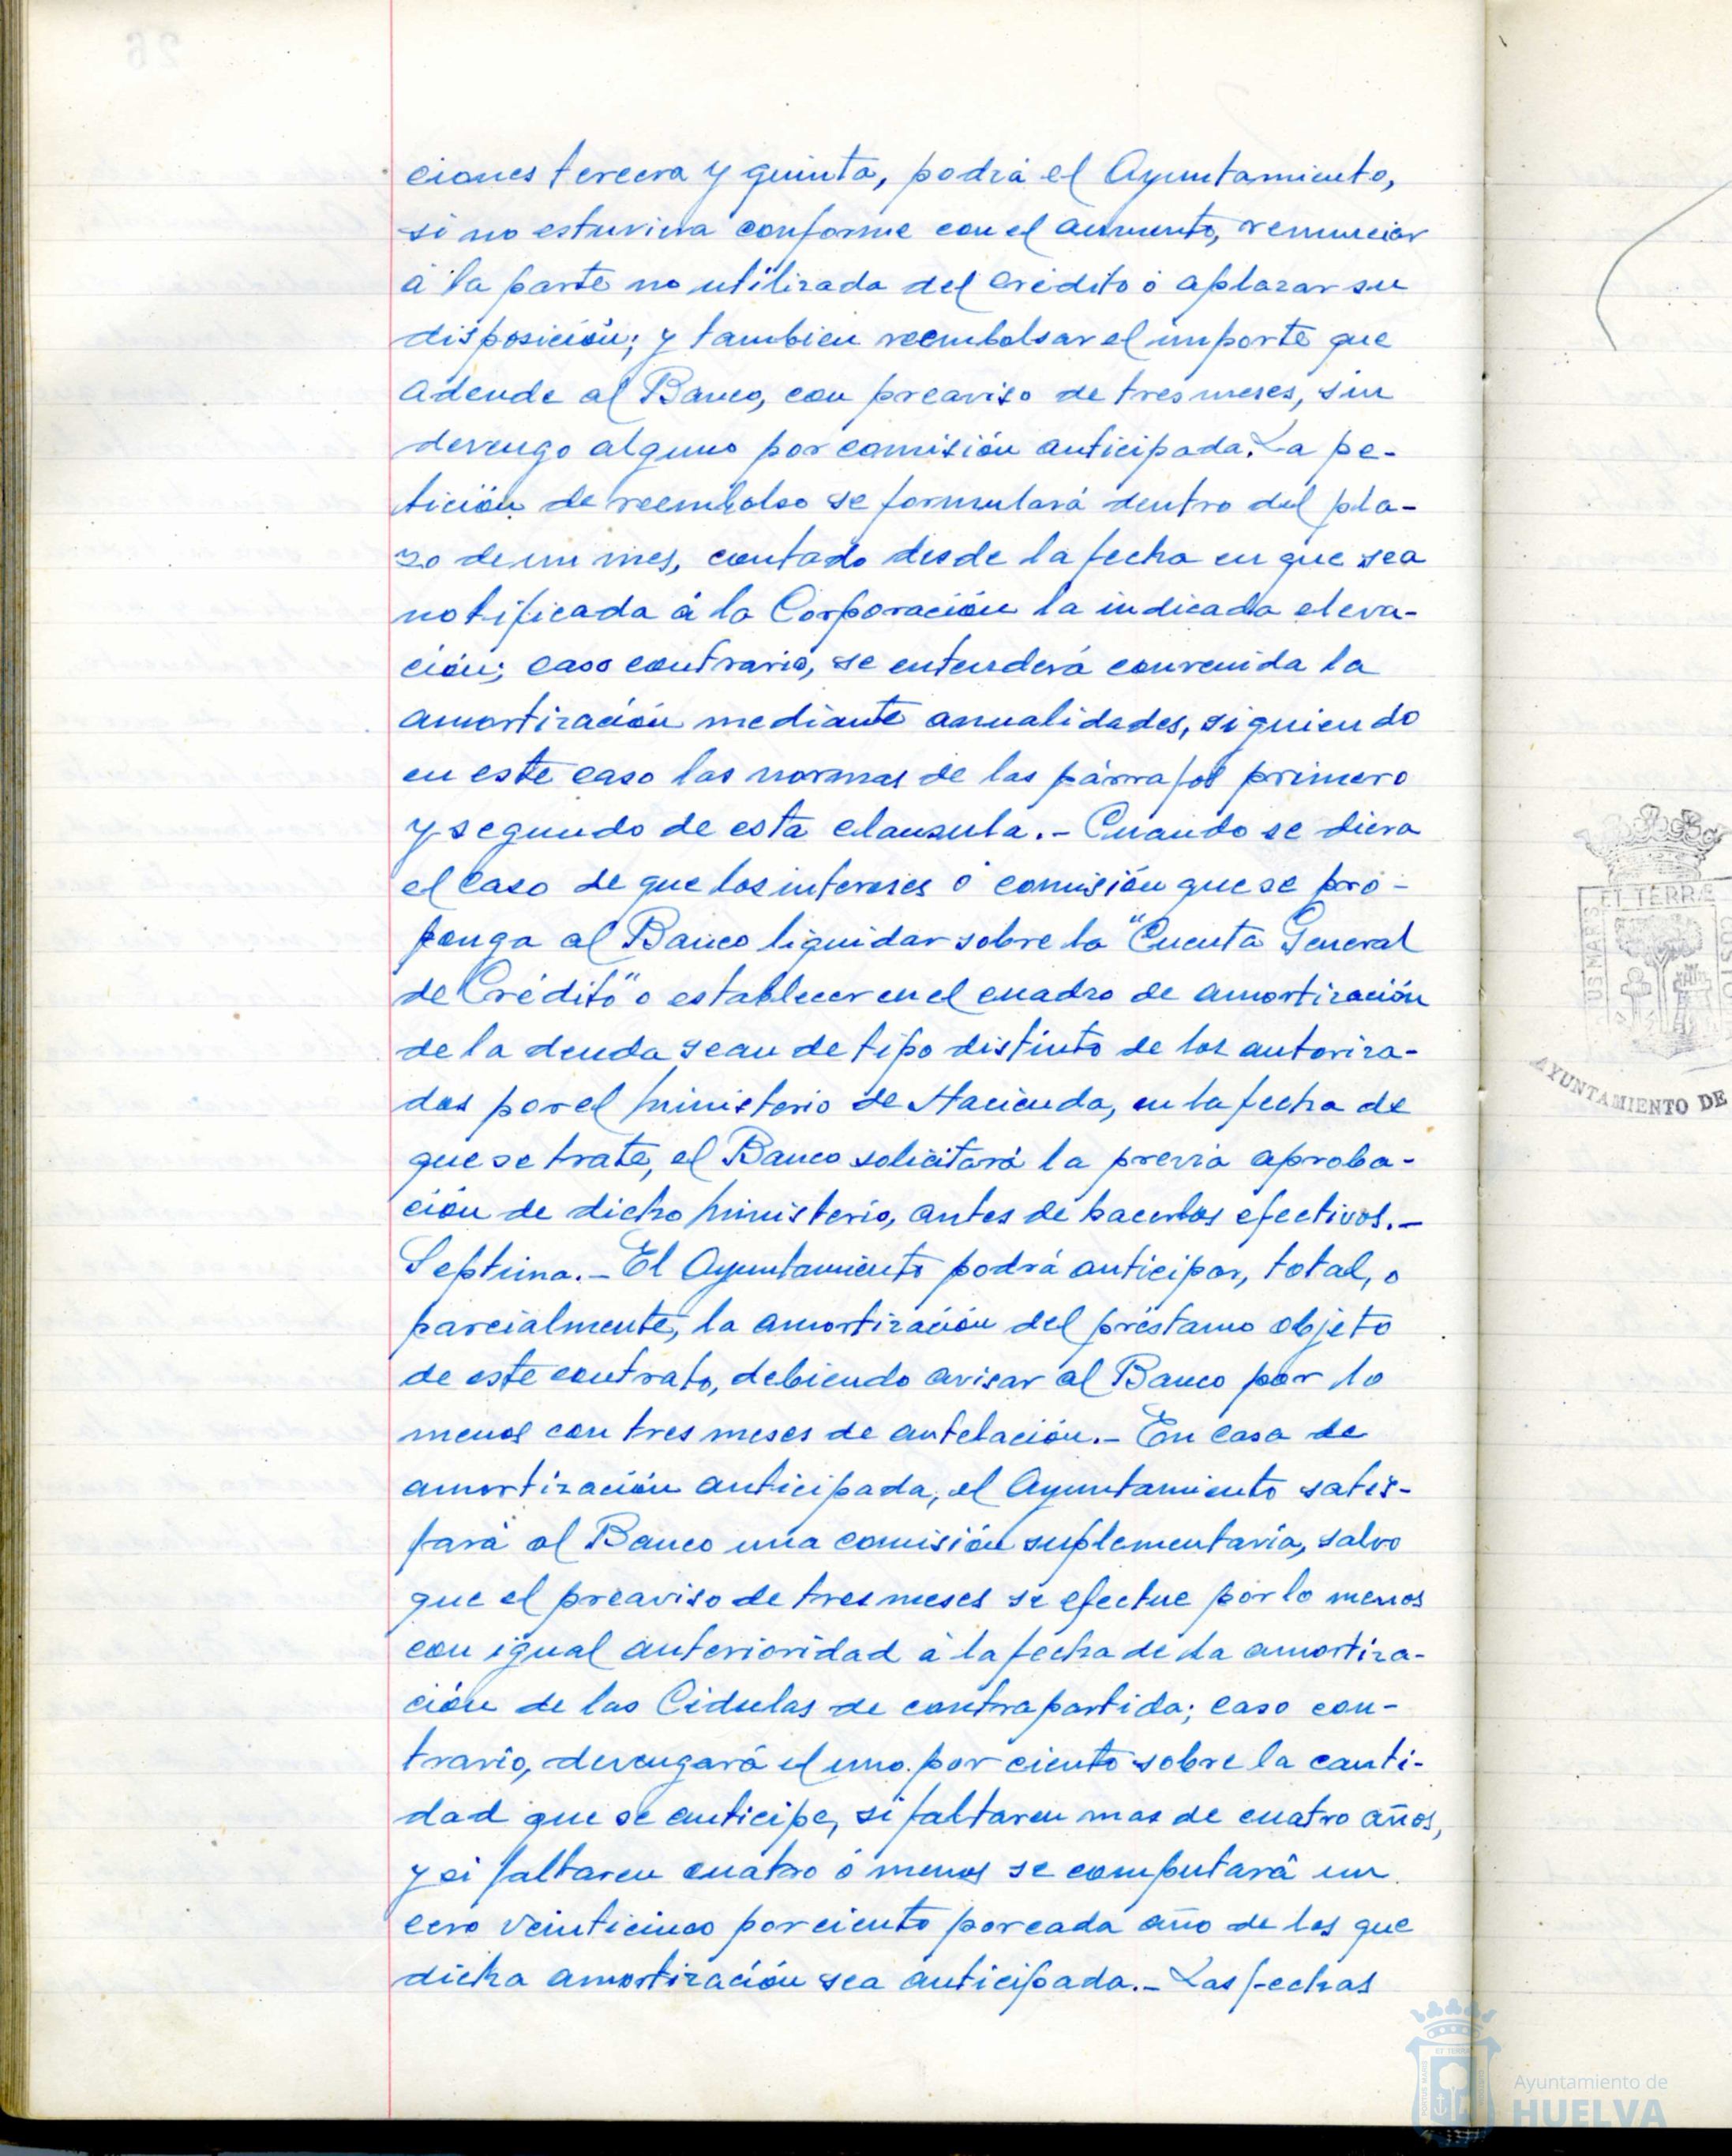 ciones tercera y quinta, podrá el Ayuntamiento,
si no estuviera conforme con el aumento, renunciar
á la parte no utilizada del crédito ó aplazar su
disposición; y tambien reembolsar el importe que
adeude al Banco, con preaviso de tres meses, sin
devengo alguno por comisión anticipada. La pe-
tición de reembolso se formulará dentro del pla-
zo de un mes, contado desde la fecha en que sea
notificada á la Corporación la indicada eleva-
ción; caso contrario, se entenderá convenida la
amortización mediante anualidades, siguiendo
en este caso las normas de los párrafos primero
y segundo de esta clausula.- Cuando se diera
el caso de que los intereses ó comisión que se pro-
ponga al Banco liquidar sobre la "Cuenta General
de Crédito" o establecer en el cuadro de amortización
de la deuda sean de tipo distinto de los autoriza-
dos por el Ministerio de Hacienda, en la fecha de
que se trate, el Banco solicitará la previa aproba-
ción de dicho Ministerio, antes de hacerlos efectivos.-
Septima.- El Ayuntamiento podrá anticipar, total, o
parcialmente, la amortización del préstamo objeto
de este contrato, debiendo avisar al Banco por lo
menos con tres meses de antelación.- En caso de
amortización anticipada, el Ayuntamiento satis-
fará al Banco una comisión suplementaria, salvo
que el preaviso de tres meses se efectue por lo menos
con igual anterioridad á la fecha de la amortiza-
ción de las Cédulas de contrapartida; caso con-
trario, devengará el uno por ciento sobre la canti-
dad que se anticipe, si faltaren mas de cuatro años,
y si faltaren cuatro ó menos se computará un
cero veinticinco por ciento por cada año de los que
dicha amortización sea anticipada.- Las fechas
ET TERRÆ
AYUNTAMIENTO DE
Ayuntamiento de
HUELVA